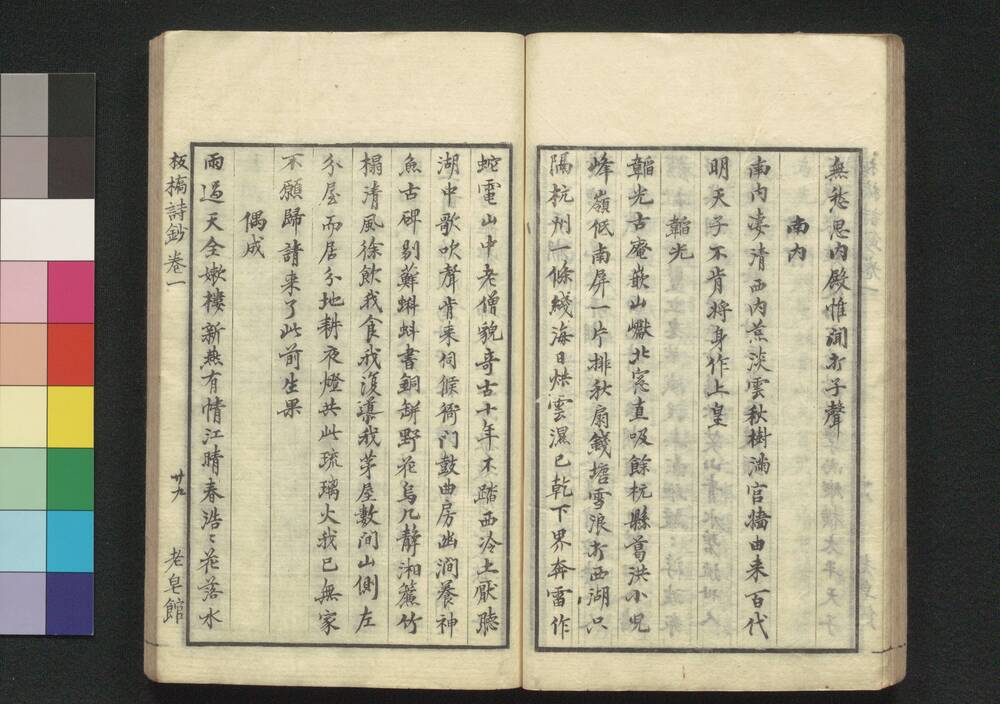 無愁思内殿惟聞打子聲
南内
南内凄清西内荒淡雲秋樹滿宮牆由来百代
明天子不肯將身作上皇
韜光
韜光古庵嵌山巘北窓直吸餘杭縣葛洪小兒
峰嶺低南屏一片排秋扇錢塘雪浪打西湖只
隔杭州一條綫海日烘雲濕已乾下界奔雷作
蛇電山中老僧貌奇古十年不踏西泠土厭聴
湖中歌吹聲肯来伺候衙门鼓曲房幽涧養神
魚古碑剔蘚蝌蚪書銅缾野花烏几静湘簾竹
榻清風徐飲我食我復導我茅屋數间山側左
分屋而居分地耕夜燈共此琉璃火我已無家
不願歸請来了此前生果
偶成
雨過天全嫩樓新热有情江晴春浩〻花落水
板橋詩鈔 卷一 廿九 老皂館